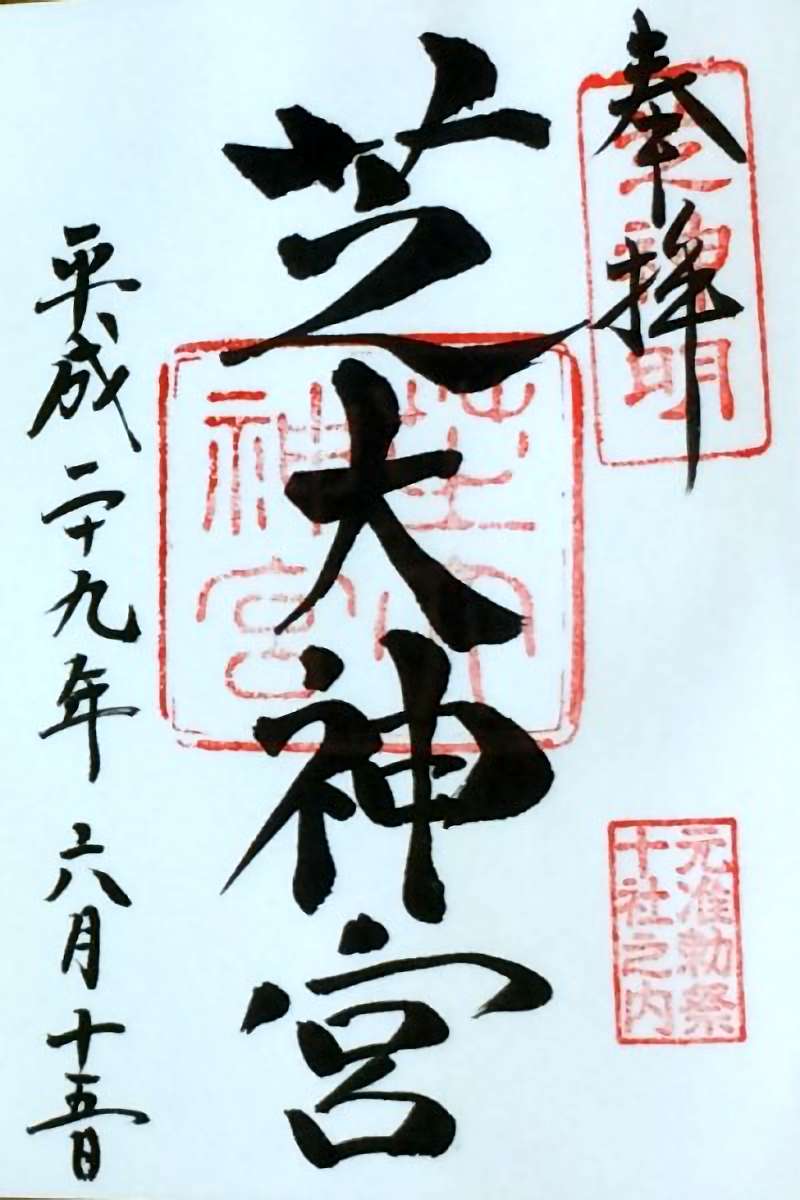 奉拝
芝神明
元准勅祭
十社之内
芝大神宮
芝大
神宮
平成二十九年六月十五日